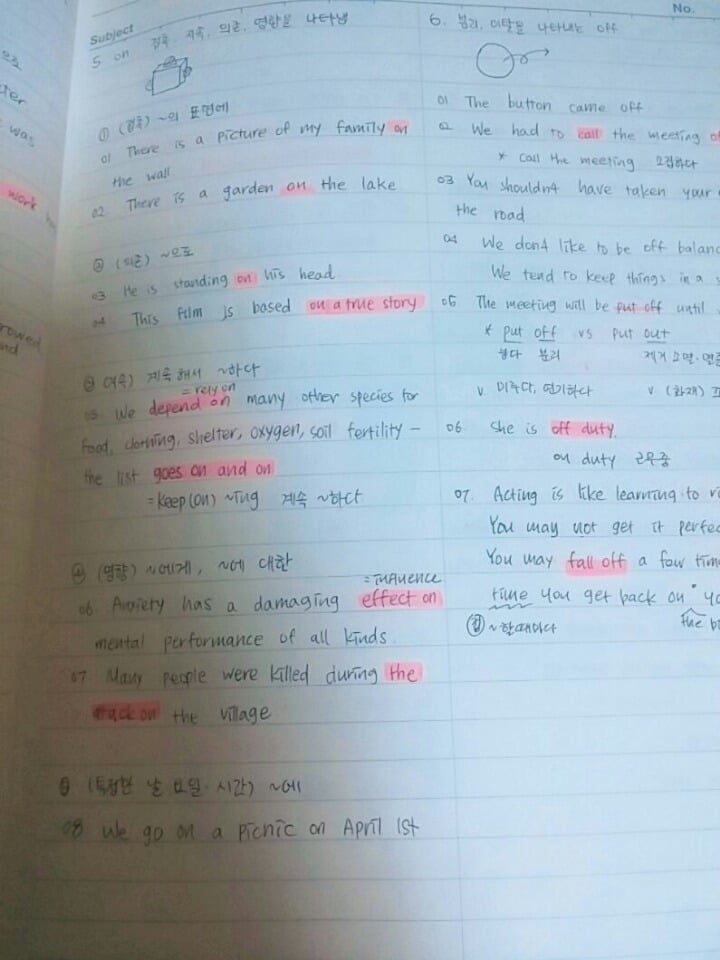 No.
Subject
5 on 접촉, 지속, 의존, 영향을 나타냄
① (접촉) ~의 표면에
01 There is a picture of my family on
the wall
02 There is a garden on the lake
② (의존) ~으로
03 He is standing on his head
04 This Film is based on a true story
계속해서 ~하다
= rely on
05 We depend on many other species for
food, clothing, shelter, oxygen, soil fertility –
the list goes on and on
= keep (on) ~ing 계속 ~하다
④ (영향) ~에게, ~에 대한
= influence
06 Anxiety has a damaging effect on
mental performance of all kinds.
07 Many people were killed during the
attack on the village
⑤ (특정한 날 요일·시간) ~에
08 We go on a picnic on April 1st
6. 분리, 이탈을 나타내는 off
01 The button came off
02 We had to call the meeting
* call the meeting 소집하다
03 You shouldn't have taken your
the road
04 We don't like to be off
We tend to keep things in a
05 The meeting will be put off until
* put off vs put out
놓다 분리 제거 소멸
v 미루다, 연기하다 v (화재)
06. She is off duty.
on duty 근무중
07. Acting is like learning to
You may not get it
You may fall off a few
time you get back on
~할때마다 the
ter
was
work
rowed
nd